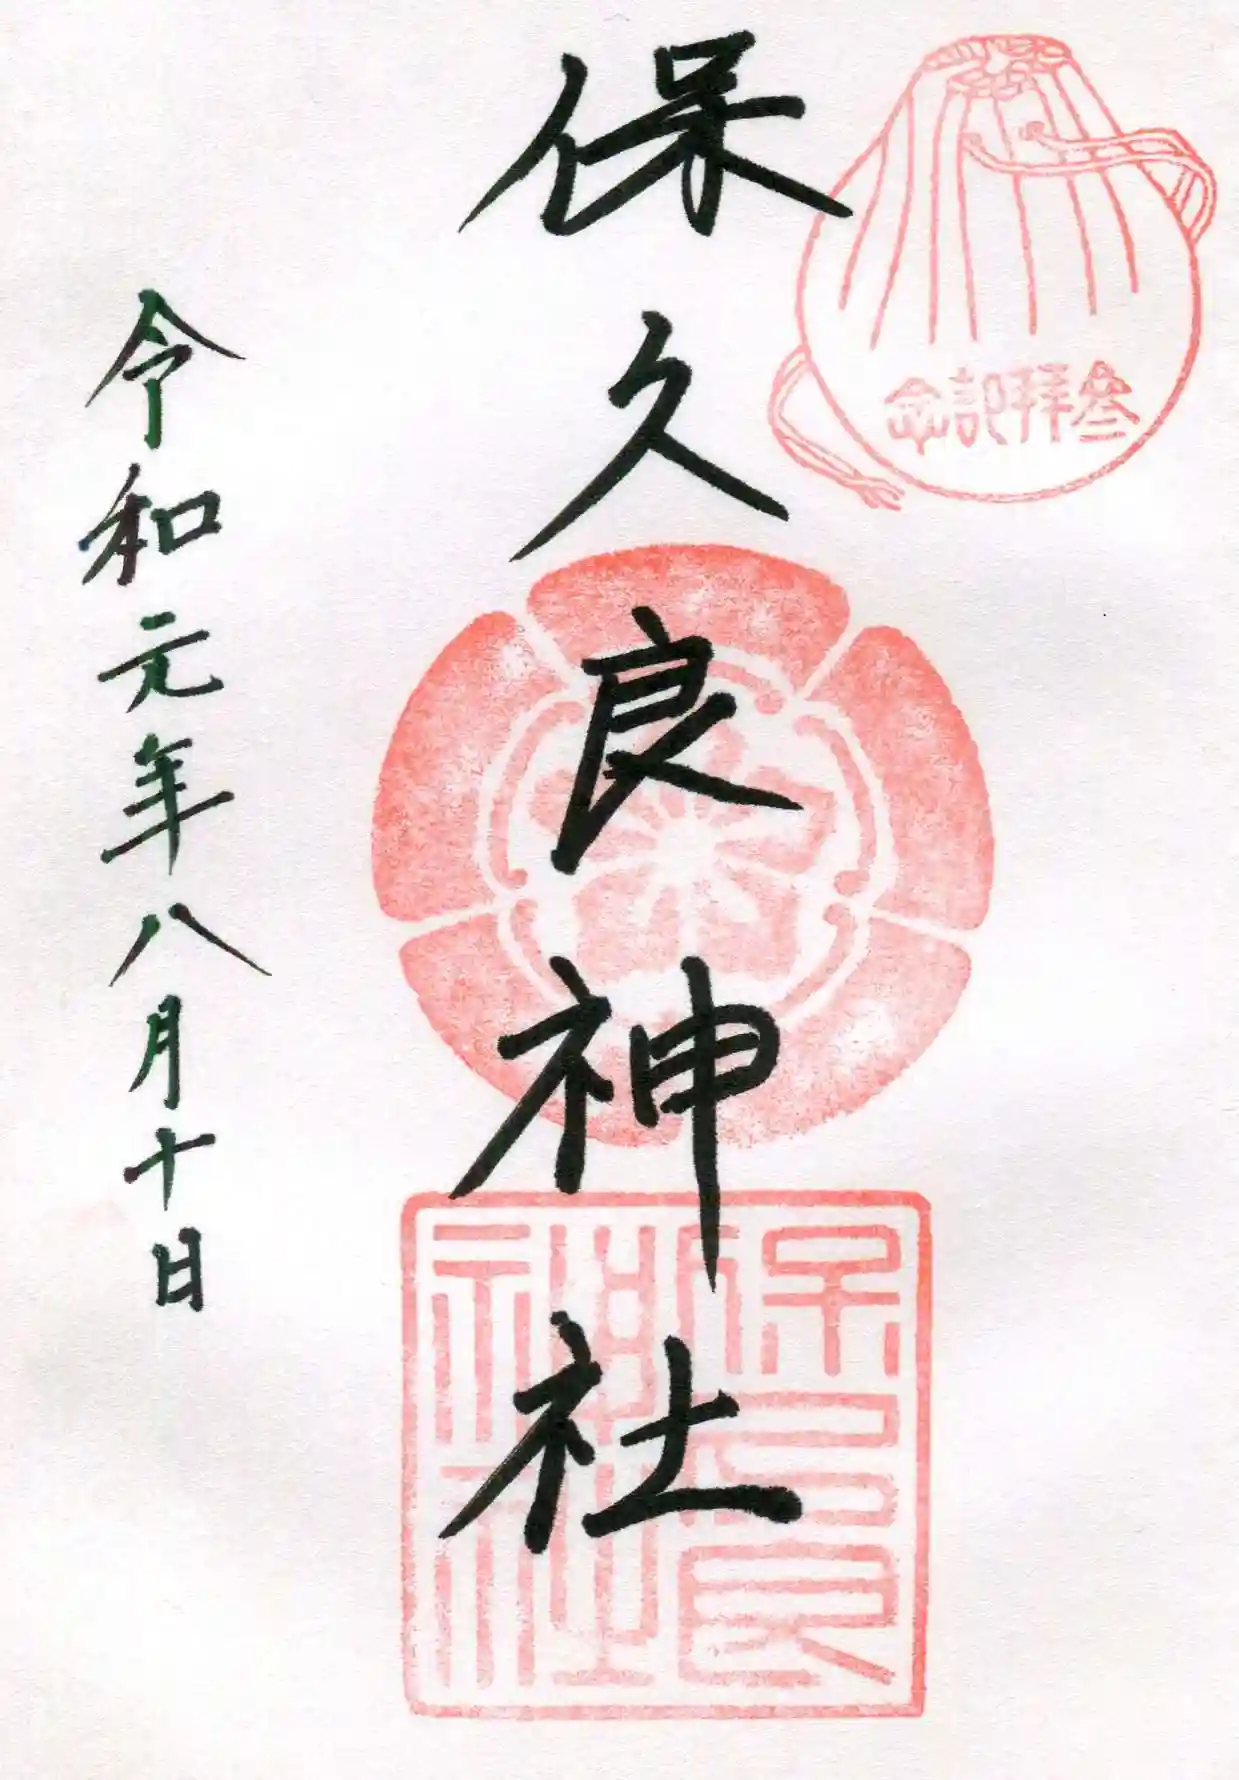 参拜記念
保久良神社
保久良
神社
令和元年八月十日